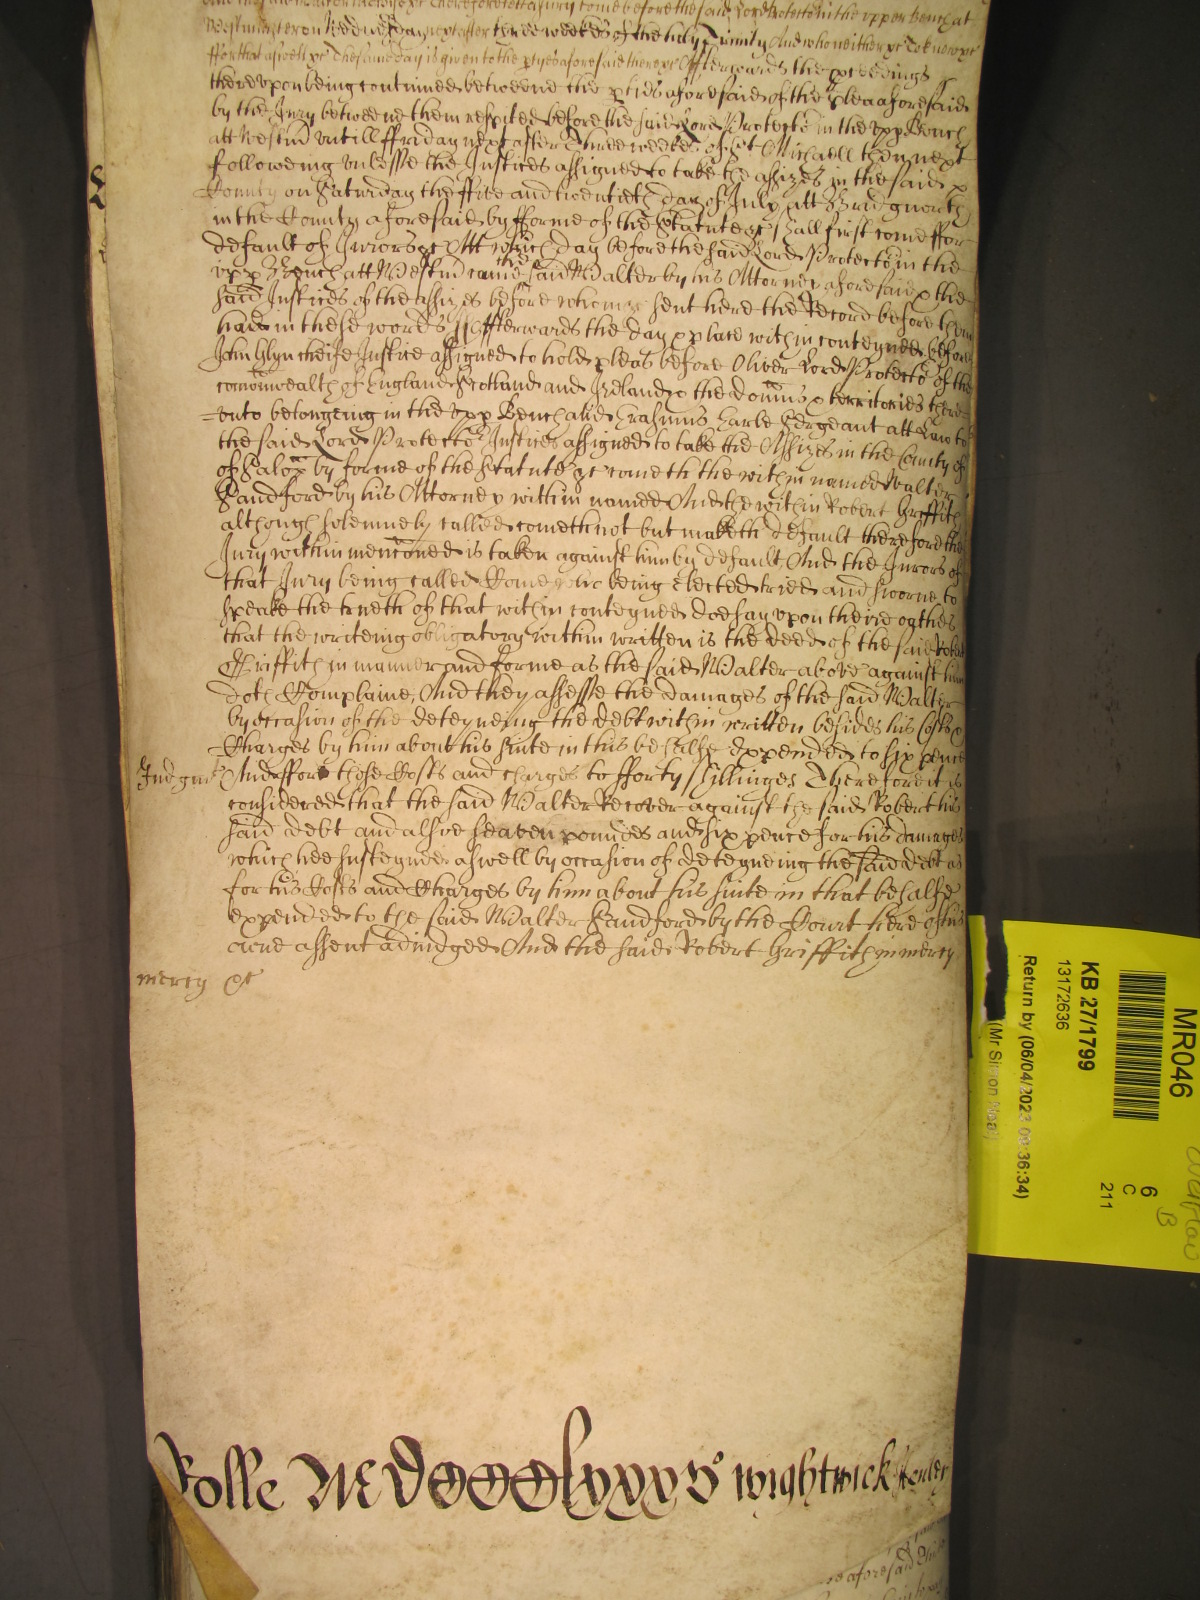 And the said Walter likewise &c Therefore lett a Jury come before the said Lord Protector in the upper bench at
Westminster on Wednesday next after three weekes of the holy Trinity And who neither &c To know &c
ffor that aswell &c The same day is given to the ptyes aforesaid there &c Afterwards the proceedings
therevpon being continued betweene the pties aforesaid of the plea aforesaid
by the Jury betweene them respited before the said Lord Protector in the vpp Bench
att Westm vntill ffriday next after Three weekes of St Michaell then next
followeing vnlesse the Justices assigned to take the assizes in the said
County on Saturday the ffive and twentieth day of July att Bridgnorth
in the County aforesaid by fforme of the Statute &c shall first come ffor
default of Jurors &c Att which day before the said Lord Protector in the
vpp Bench att Westm came the said Walter by his Attorney aforesaid & the
said Justices of the assizes before whom &c sent here the Record before them
had in these words // Afterwards the day & place within conteyned before
John Glyn cheife Justice assigned to hold pleas before Oliver Lord Protector of the
comonwealth of England Scotland and Ireland & the domins & territories there
=vnto belongeing in the vpp Bench and Erasmus Earle Sergeant att Law to
the said Lord Protector Justices assigned to take the Assizes in the County of
of Salop by forme of the Statute &c cometh the within named Walter
Sandford by his Attorney within named And the within Robert Griffith
although solemnely called cometh not but maketh default therefore the
Jury within menconed is taken against him by default, And the Jurors of
that Jury being called Come who being elected tried and sworne to
speake the trueth of that within conteyned doe say vpon theire oathes
that the writeing obligatory within written is the deed of the said Robert
Griffith in manner and forme as the said Walter above against him
doth Complaine, And they assesse the damages of the said Walter
by occasion of the deteyneing the debt within written besides his Costs &
Charges by him about his suite in this behalfe expended to six pence
Judgmt And ffor those Costs and charges to fforty shillinges Therefore it is
considered that the said Walter Recover against the said Robert his
said debt and alsoe seaven poundes and six pence for his damages
which hee susteyned aswell by occasion of deteyneing the said debt as
for his Costs and Charges by him about his suite in that behalfe
expended to the said Walter Sandford by the Court here of his
owne assent adiudged And the said Robert Griffith in mercy
mercy &c
Rolle MDCCClxxxv wightwick
MR046
KB 27/1799
13172636
Return by (06/04/2023 09:36:34)
(Mr Simon Neal)
6
C
211
B